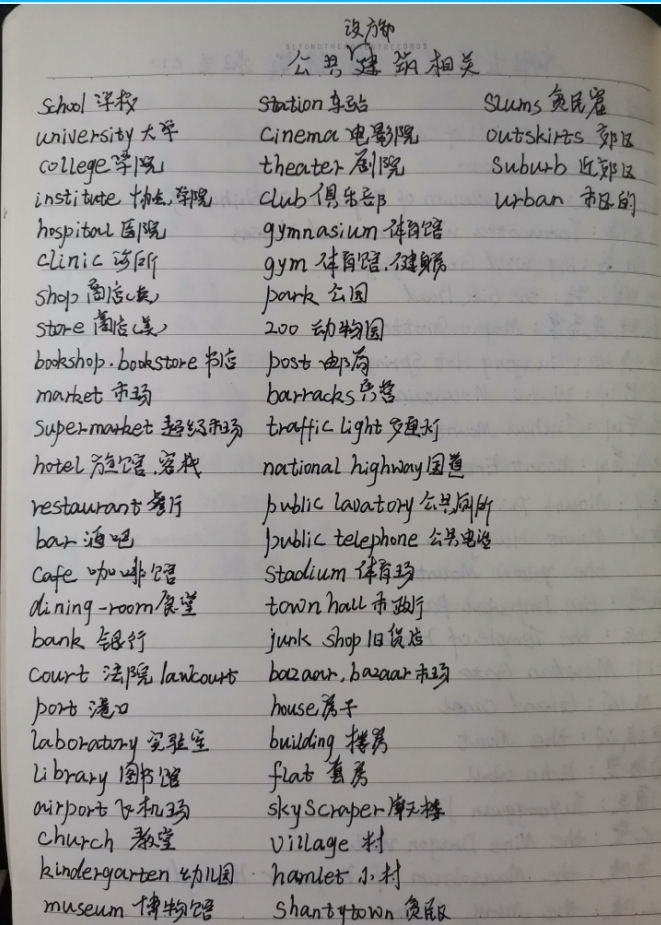 设施
公共建筑相关
school 学校
university 大学
college 学院
institute 协会.学院
hospital 医院
clinic 诊所
shop 商店(英)
store 商店(美)
bookshop.bookstore 书店
market 市场
supermarket 超级市场
hotel 旅馆.客栈
restaurant 餐厅
bar 酒吧
cafe 咖啡馆
dining-room 食堂
bank 银行
court 法院 lawcourt
port 港口
laboratory 实验室
Library 图书馆
airport 飞机场
church 教堂
kindergarten 幼儿园
museum 博物馆
station 车站
cinema 电影院
theater 剧院
club 俱乐部
gymnasium 体育馆
gym 体育馆.健身房
park 公园
zoo 动物园
post 邮局
barracks 兵营
traffic light 交通灯
national highway 国道
public lavatory 公共厕所
public telephone 公共电话
stadium 体育场
town hall 市政厅
junk shop 旧货店
bazaar, bazaar 市场
house 房子
building 楼房
flat 套房
skyscraper 摩天楼
village 村
hamlet 小村
shantytown 贫民区
slums 贫民窟
outskirts 郊区
suburb 近郊区
urban 市区的